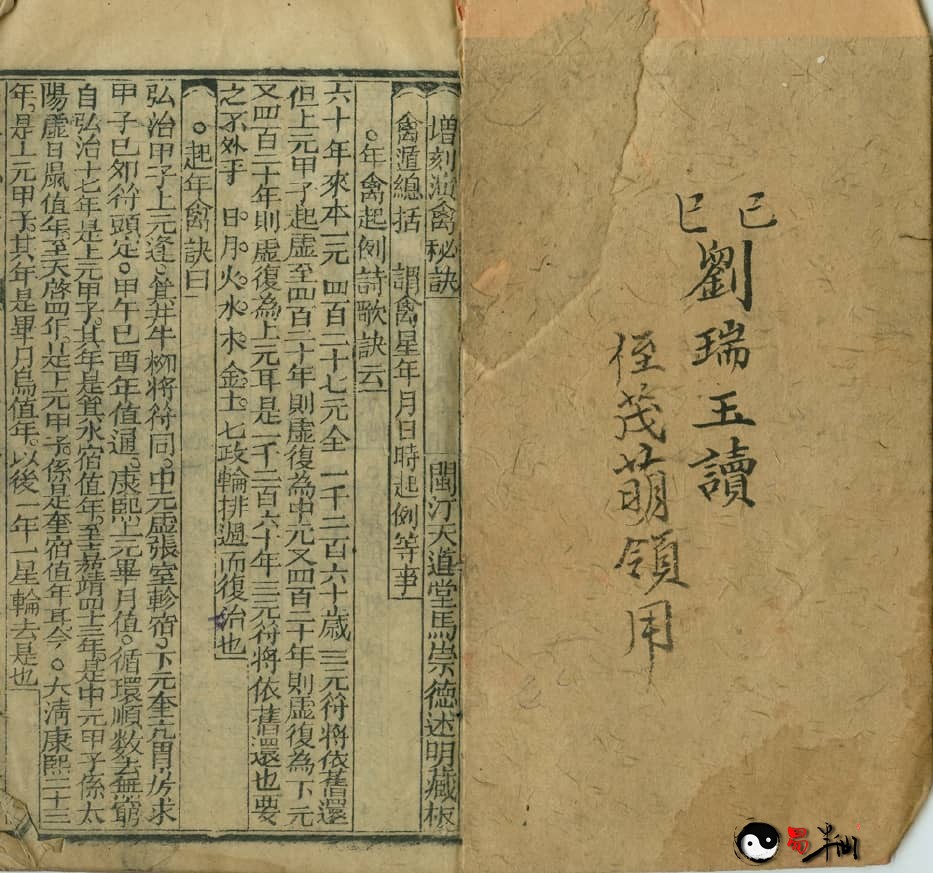 己巳
劉瑞玉讀
侄茂萌領用
增刻演禽秘訣 閩汀天道堂馬崇德述明藏板
禽遁總括 謂禽星年月日時起例等事
○年禽起例詩歌訣云
六十年來本一元 四百二十七元全 一千二百六十歲 三元符將依舊還
但上元甲子起虛至四百二十年則虛復為中元又四百二十年則虛復為下元
又四百二十年則虛復為上元耳是一千二百六十年三元符將依舊還也要
之不外乎 日。月。火。水。木。金。土。七政輪排週而復治也
○起年禽訣曰
弘治甲子上元逢。箕井牛柳將符同。中元虛張室軫宿。下元奎亢胃房求
甲子巳夘符頭定。甲午巳酉年值通。康熙上元畢月值。循環順数去無窮
自弘治十七年是上元甲子。其年是箕水宿值年。至嘉靖四十三年。是中元甲子係太
陽虛日鼠值年。至天啓四年。是下元甲子。係是奎宿值年耳。今。大清康熙二十三
年。是上元甲子。其年是畢月烏值年。以後一年一星輪去是也
易半仙